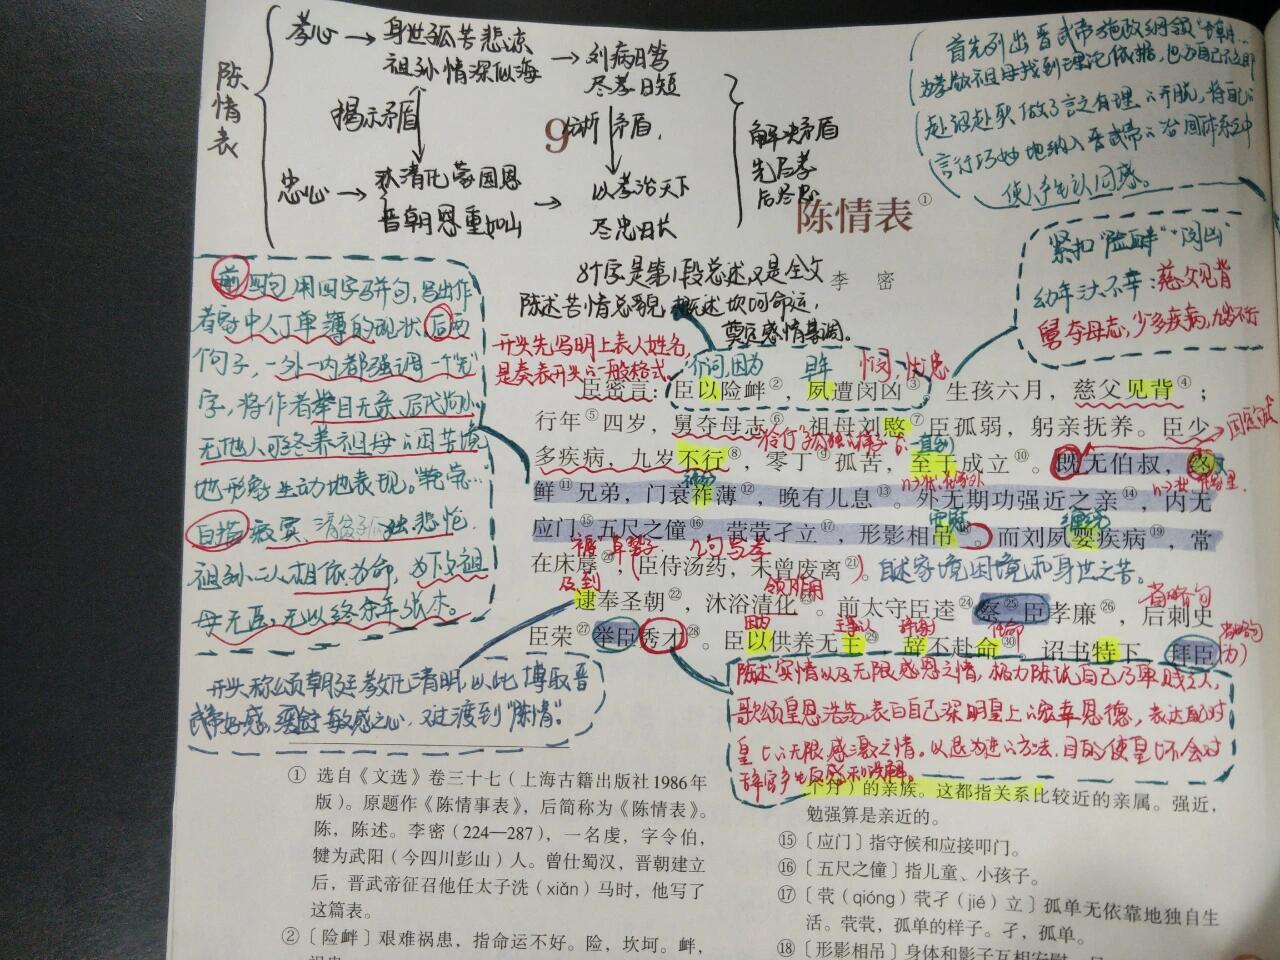 陈情表
孝心→身世孤苦悲凉
祖孙情深似海
→刘病日笃
尽孝日短
揭示矛盾
分析矛盾,
9
忠心→
清化蒙国恩
晋朝恩重如山
→以孝治天下
尽忠日长
解决矛盾
先尽孝
后尽忠
首先列出晋武帝施政纲领
为孝敬祖母找到理论依据,也为自己不立即
赴诏赴职做了言之有理的开脱,将自己
言行巧妙地纳入晋武帝的治国体系之中
使人产生认同感。
陈情表①
李 密
8个字是第1段总述又是全文
陈述苦情总貌,概述坎坷命运,
奠定感情基调。
紧扣“险衅”“闵凶”
幼年之大不幸:慈父见背
舅夺母志,少多疾病,九岁不行
前四句用四字骈句,写出作
者家中人丁单薄的现状,后两
个句子,一外一内都强调一个“无”
字,将作者举目无亲,后代尚小
无他人可终养祖母的困苦境
地形象生动地表现。“茕茕”
自描寂寞、清贫孤独悲怆.
祖孙二人相依为命,为下文祖
母无臣,无以终余年张本。
开头先写明上表人姓名,
是奏表开头的一般格式.
介词,因为 早年 忧患
臣密言:臣以险衅②,夙遭闵凶③。生孩六月,慈父见背④;
行年⑤四岁,舅夺母志⑥。祖母刘愍⑦臣孤弱,躬亲抚养。臣少
多疾病,九岁不行⑧,零丁⑨孤苦,至于成立⑩。既无伯叔,终
鲜⑪兄弟,门衰祚薄⑫,晚有儿息⑬。外无期功强近之亲⑭,内无
应门⑮五尺之僮⑯,茕茕孑立⑰,形影相吊⑱。而刘夙婴疾病⑲,常
在床蓐⑳,臣侍汤药,未曾废离㉑。自述家境困境而身世之苦。
及到
逮奉圣朝㉒,沐浴清化㉓。前太守臣逵㉔察㉕臣孝廉㉖,后刺史
臣荣㉗举臣秀才㉘。臣以供养无主㉙,辞不赴命㉚。诏书特下,拜臣
开头称颂朝廷教化清明,以此博取晋
武帝好感,缓解敏感之心,又过渡到“陈情”。
陈述实情以及无限感恩之情,极力陈说自己乃卑贱之人,
歌颂皇恩浩荡,表白自己深明皇上的宠幸恩德,表达自己对
皇上的无限感激之情。以退为进的方法,目的使皇上不会对
辞官产生反感和误解。
① 选自《文选》卷三十七(上海古籍出版社1986年
版)。原题作《陈情事表》,后简称为《陈情表》。
陈,陈述。李密(224—287),一名虔,字令伯,
犍为武阳(今四川彭山)人。曾仕蜀汉,晋朝建立
后,晋武帝征召他任太子洗(xiǎn)马时,他写了
这篇表。
② 〔险衅〕艰难祸患,指命运不好。险,坎坷。衅,
的亲族。这都指关系比较近的亲属。强近,
勉强算是亲近的。
⑮ 〔应门〕指守候和应接叩门。
⑯ 〔五尺之僮〕指儿童、小孩子。
⑰ 〔茕(qióng)茕孑(jié)立〕孤单无依靠地独自生
活。茕茕,孤单的样子。孑,孤单。
⑱ 〔形影相吊〕身体和影子互相安慰,